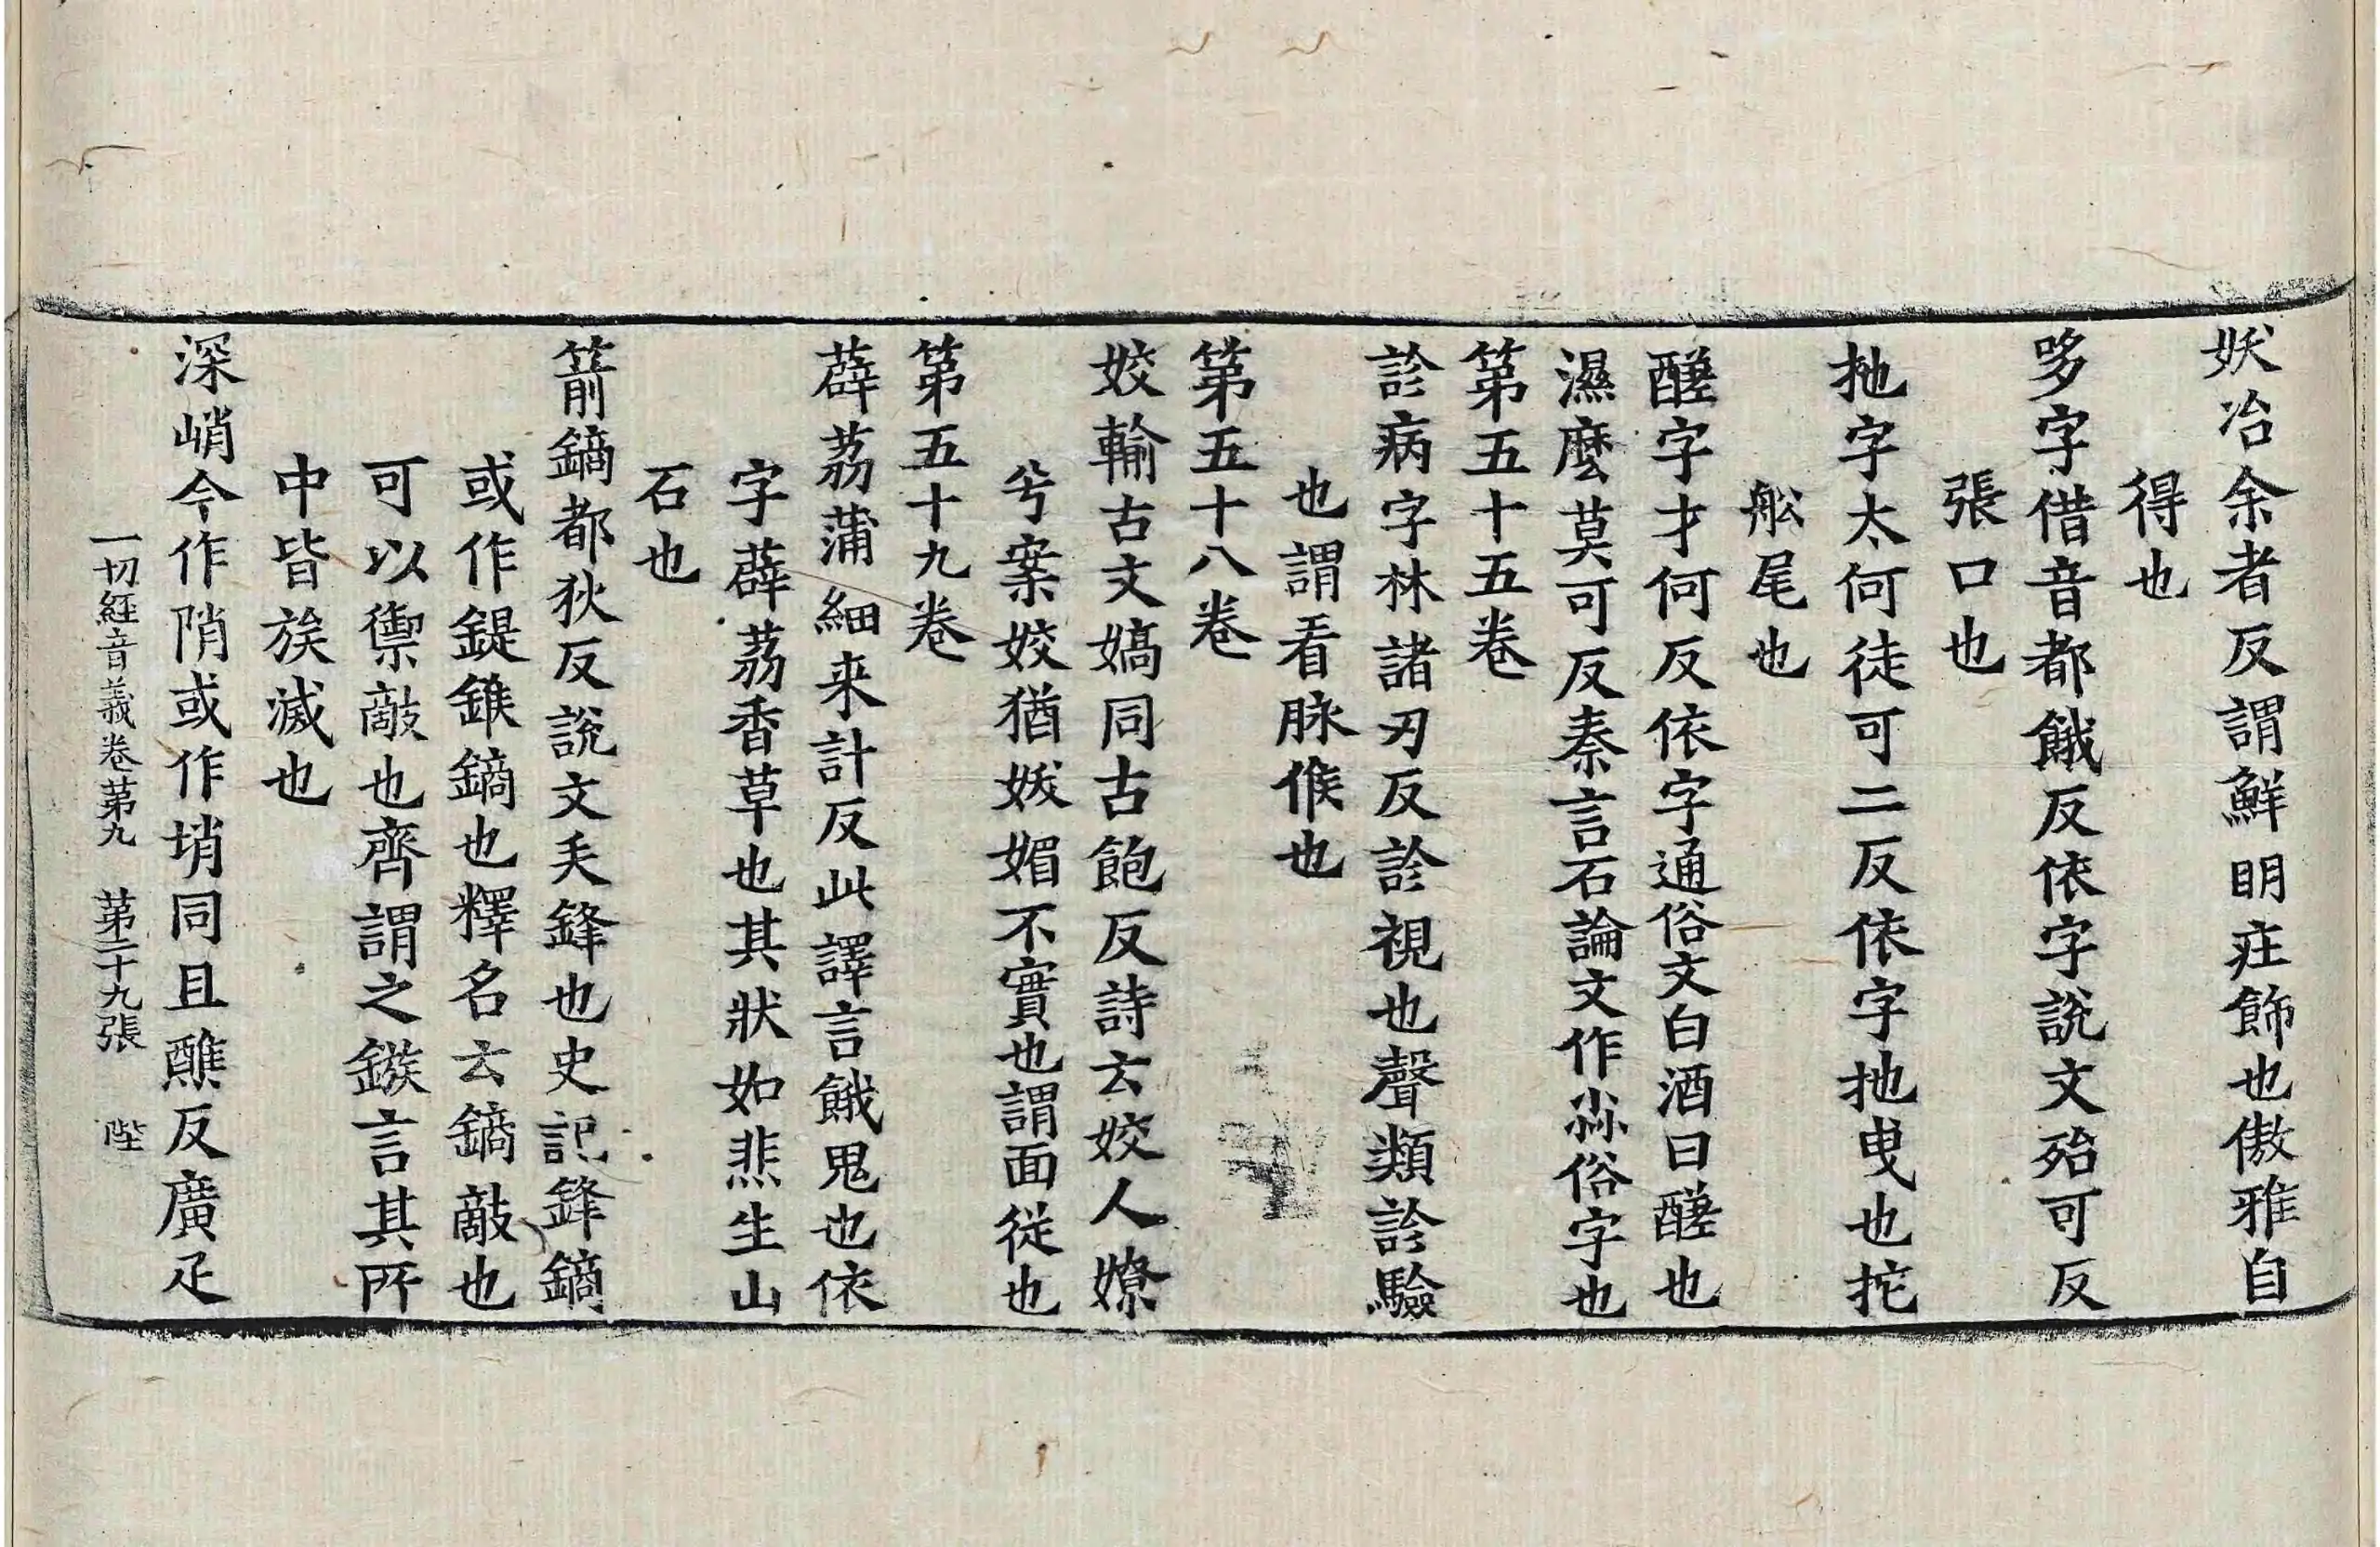 妖冶余者反謂鮮明疘飾也傲雅自
得也
哆字借音都餓反依字說文殆可反
張口也
扡字太何徒可二反依字扡曳也拕
舩尾也
醝字才何反依字通俗文白酒曰醝也
濕麼莫可反秦言石論文作尛俗字也
第五十五卷
診病字林諸刃反診視也聲類診驗
也謂看脉候也
第五十八卷
姣輸古文嬌同古飽反詩云姣人嫽
兮案姣猶妖媚不實也謂面從也
第五十九卷
薜荔蒲細来計反此譯言餓鬼也依
字薜荔香草也其狀如悲生山
石也
箭鏑都狄反說文矢鋒也史記鋒鏑
或作鍉錐鏑也釋名云鏑敵也
可以禦敵也齊謂之鏃言其所
中皆族滅也
深峭今作陗或作㟋同且醮反廣疋
一切經音義卷第九　第二十九張　陛